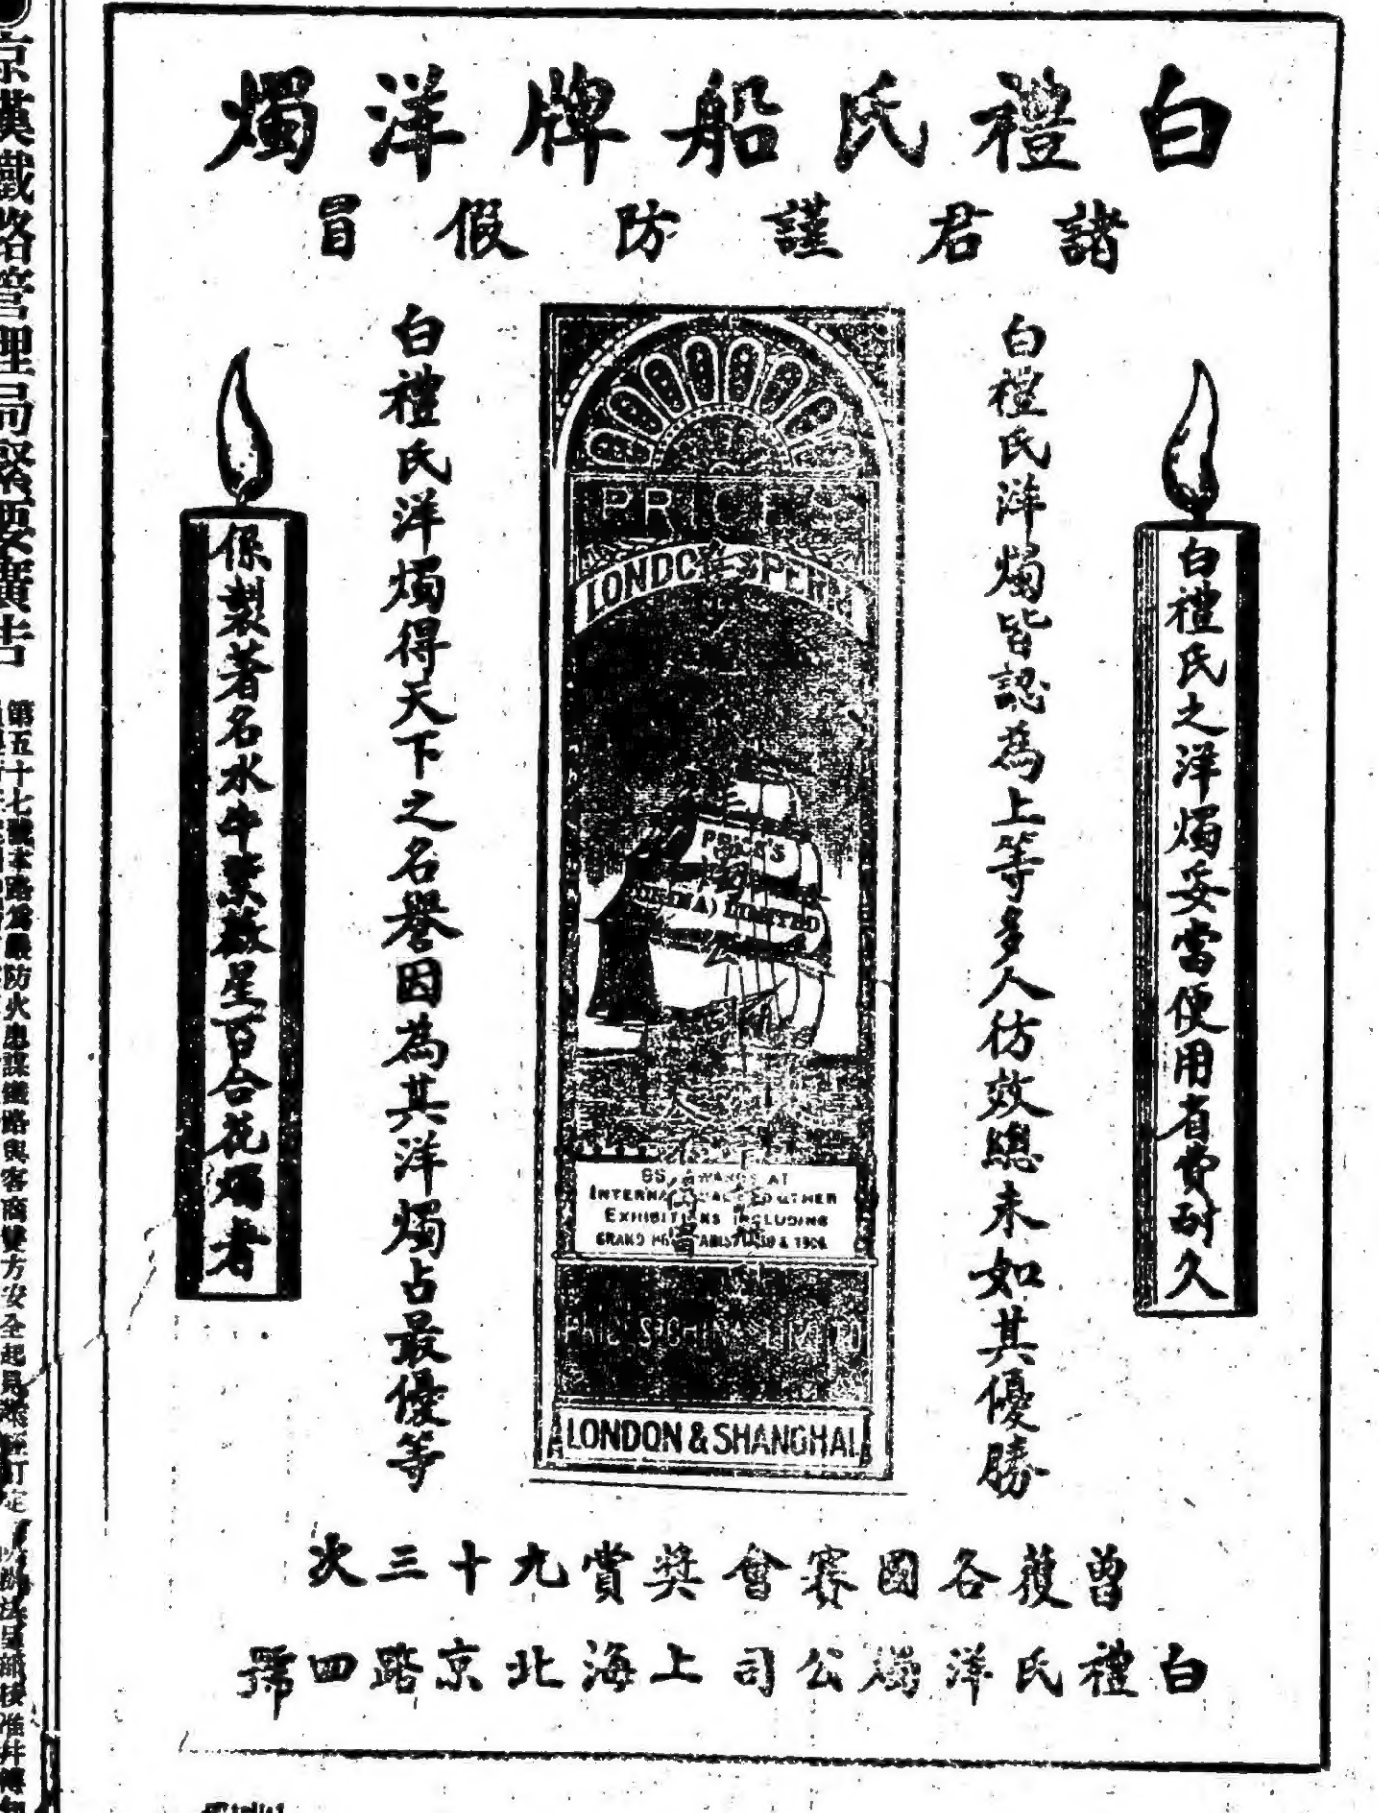 白禮氏船牌洋燭
諸君謹防假冒
白禮氏之洋燭妥當便用省費耐久
白禮氏洋燭皆認為上等多人彷效總未如其優勝
PRICE'S
LONDON SPERM
PRICE'S
(CHINA) LIMITED
AWARDS AT
INTERNATIONAL AND OTHER
EXHIBITIONS INCLUDING
GRAND & 1906
PRICE'S CHINA LIMITED
LONDON & SHANGHAI
白禮氏洋燭得天下之名譽因為其洋燭占最優等
係製著名水牛紫薇星百合花燭者
曾獲各國賽會獎賞九十三次
白禮氏洋燭公司上海北京路四號
京漢鐵路管理局緊要廣告
第五十七號本路為嚴防火患謀鐵路與客商雙方安全起見